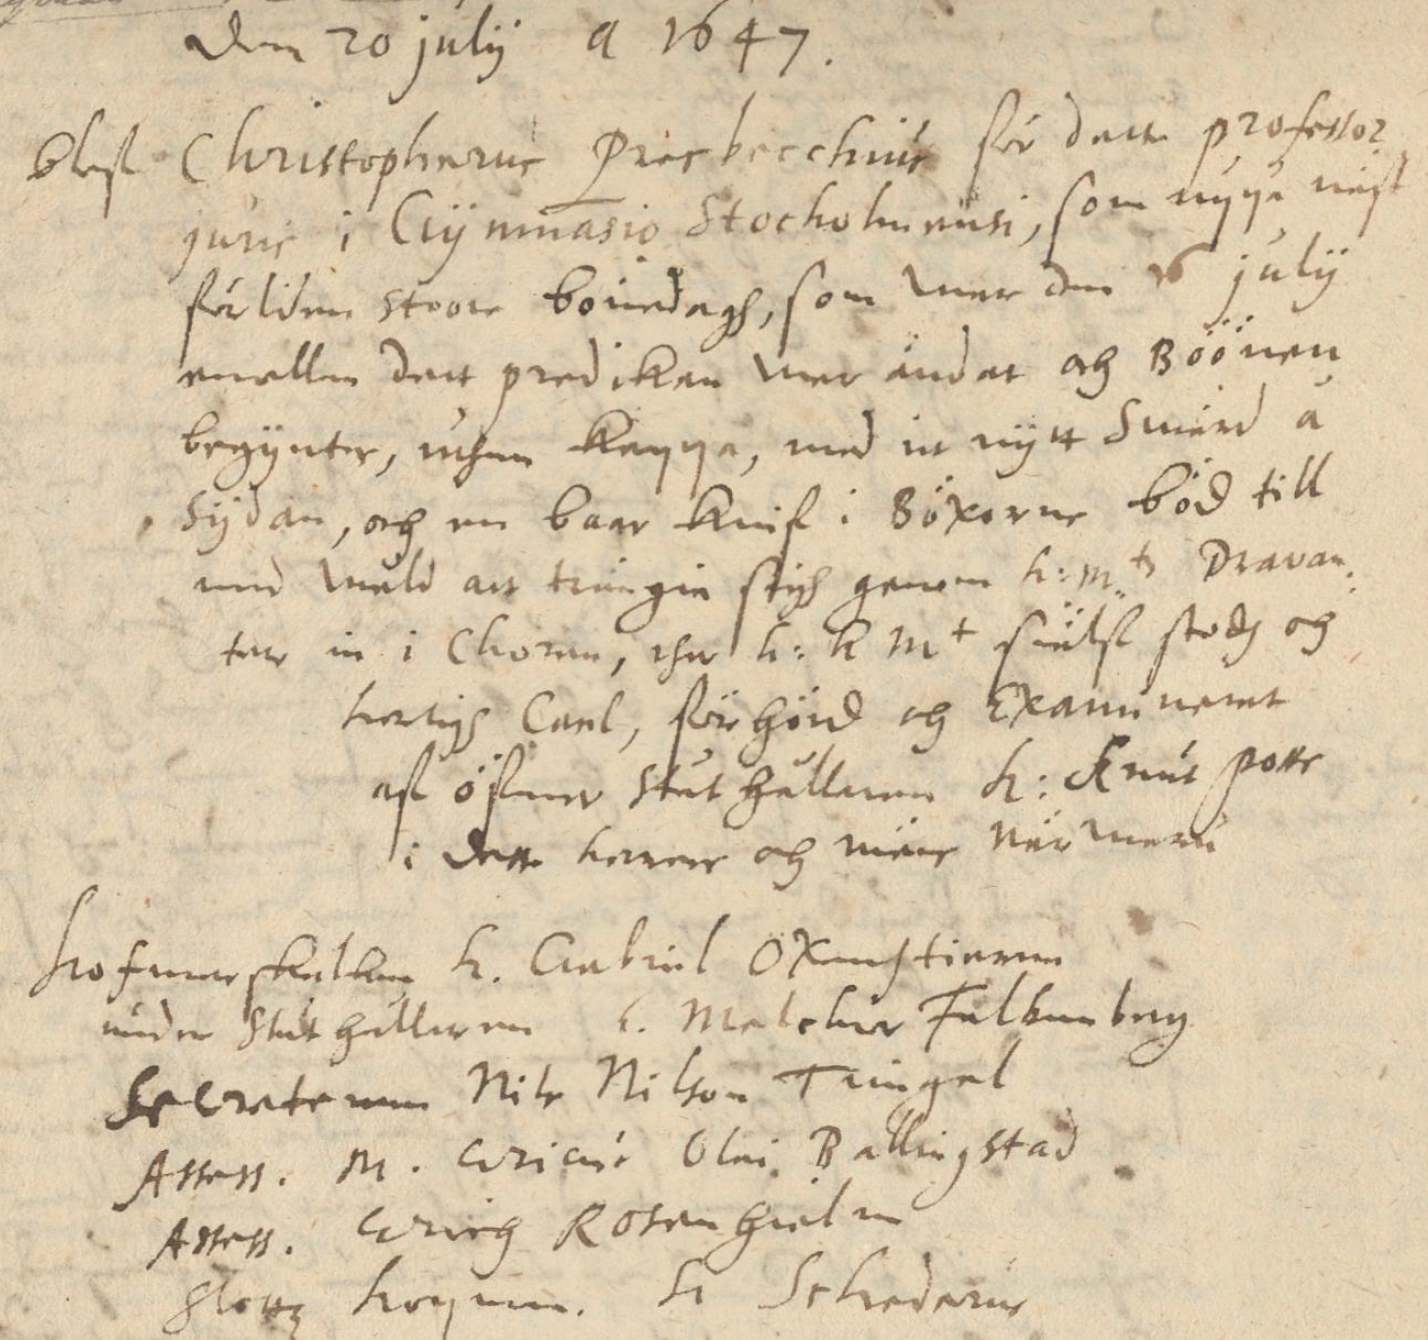 Den 20 julÿ A 1647.
bleff Christopherus Presbecchius för dette professor
juris i Gÿmnasio Stocholmensi, som nyya näst
förliden stoore bönedagh, som war den 16 julÿ
emellan dett predikan war ändat och Böönen
begÿntes, uthan kappa, med itt nÿtt Swärd å
Sÿdan, och en baar knif i Böxorne böd till
med wåld att trängia sigh genom h: M:ts Dravan,
ter in i Choren, ther h: k M:t siälff stodh och
hertigh Carl, förhörd och Examinerat
aff öfwer Ståthållaren h: Knut posse
i desse herrers och mäns närwaru
hofmarskalken h. Gabriel Oxenstierna
under Ståthållaren h. Melcher Falkenberg
Secreteraren Nils Nilson Tungel
Assess. M. Ericus Olai Ballingstad
Assess. Erich Rosenhielm
Slottz H Schederus